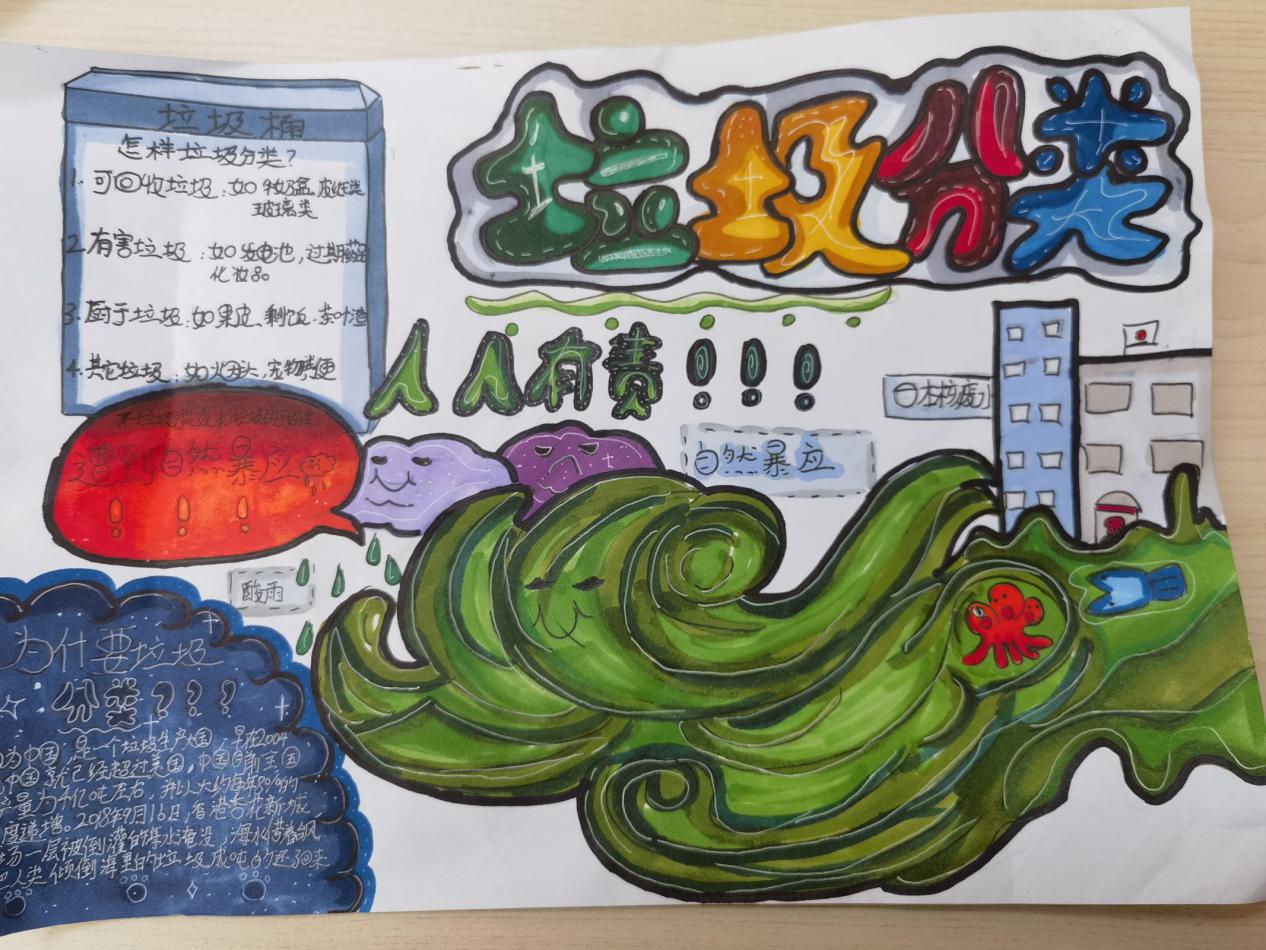 垃圾分类
人人有责!!!
垃圾桶
怎样垃圾分类?
1.可回收垃圾:如牛奶盒,废纸类
玻璃类
2.有害垃圾:如发电池,过期药品
化妆品
3.厨于垃圾:如果皮、剩饭、茶叶渣
4.其它垃圾:如火因头,宠物粪便
遭到自然暴应
!!!
日本核废
自然暴应
酸雨
为什要垃圾
分类???
为中国是一个垃圾生产大国,早在2004
中国就已经超过美国,中国目前
产量为4亿吨左右,并以大约每年8%的
度递增。2018年9月16日,香港杏花新城
场一层被倒灌的海水淹没,海水带着飓
把人类倾倒海里的垃圾成吨的还回来